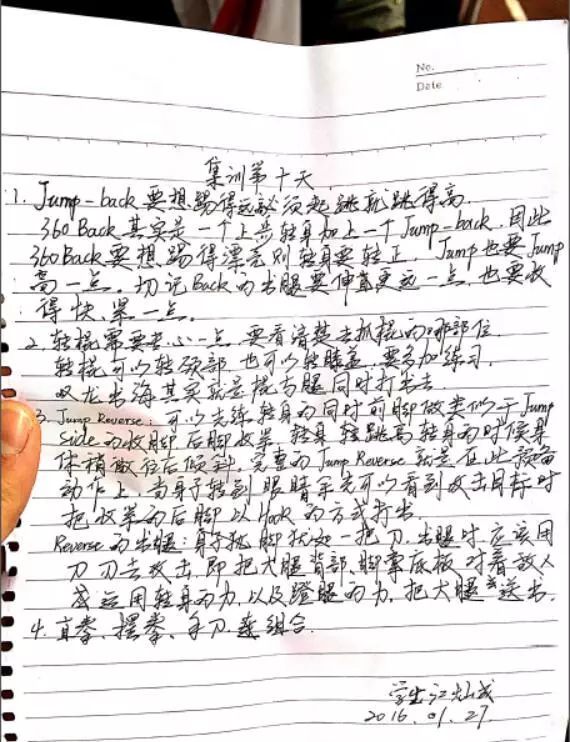 No.
Date
集训第十天
1. Jump-back要想踢得远必须起跳就跳得高.
360 Back其实是一个上步转身加上一个Jump-back.因此
360Back要想踢得漂亮则转身要转正, Jump也要Jump
高一点. 切记Back的出腿要伸直更远一点,也要收
得快、紧一点。
2. 转棍需要小一点,要看清楚去抓棍的哪部位
转棍可以转颈部,也可以转膝盖,要多加练习.
双龙出海其实就是棍与腿同时打出去
3. Jump Reverse: 可以先练转身的同时前脚做类似于Jump
Side的收脚后脚收紧,转身轻跳高转身的时候身
体稍微往后倾斜.完整的Jump Reverse就是在此预备
动作上,当身子转到眼睛余光可以看到攻击目标时
把收紧的后脚以Hook的方式打出.
Reverse的出腿:身子犹脚犹如一把刀.出腿时应该用
刀刃去攻击,即把大腿背部、脚掌底板对着敌人
运用转身的力,以及蹬腿的力,把大腿送出.
4. 直拳、摆拳、手刀组合.
学生江灿成
2016.01.27.